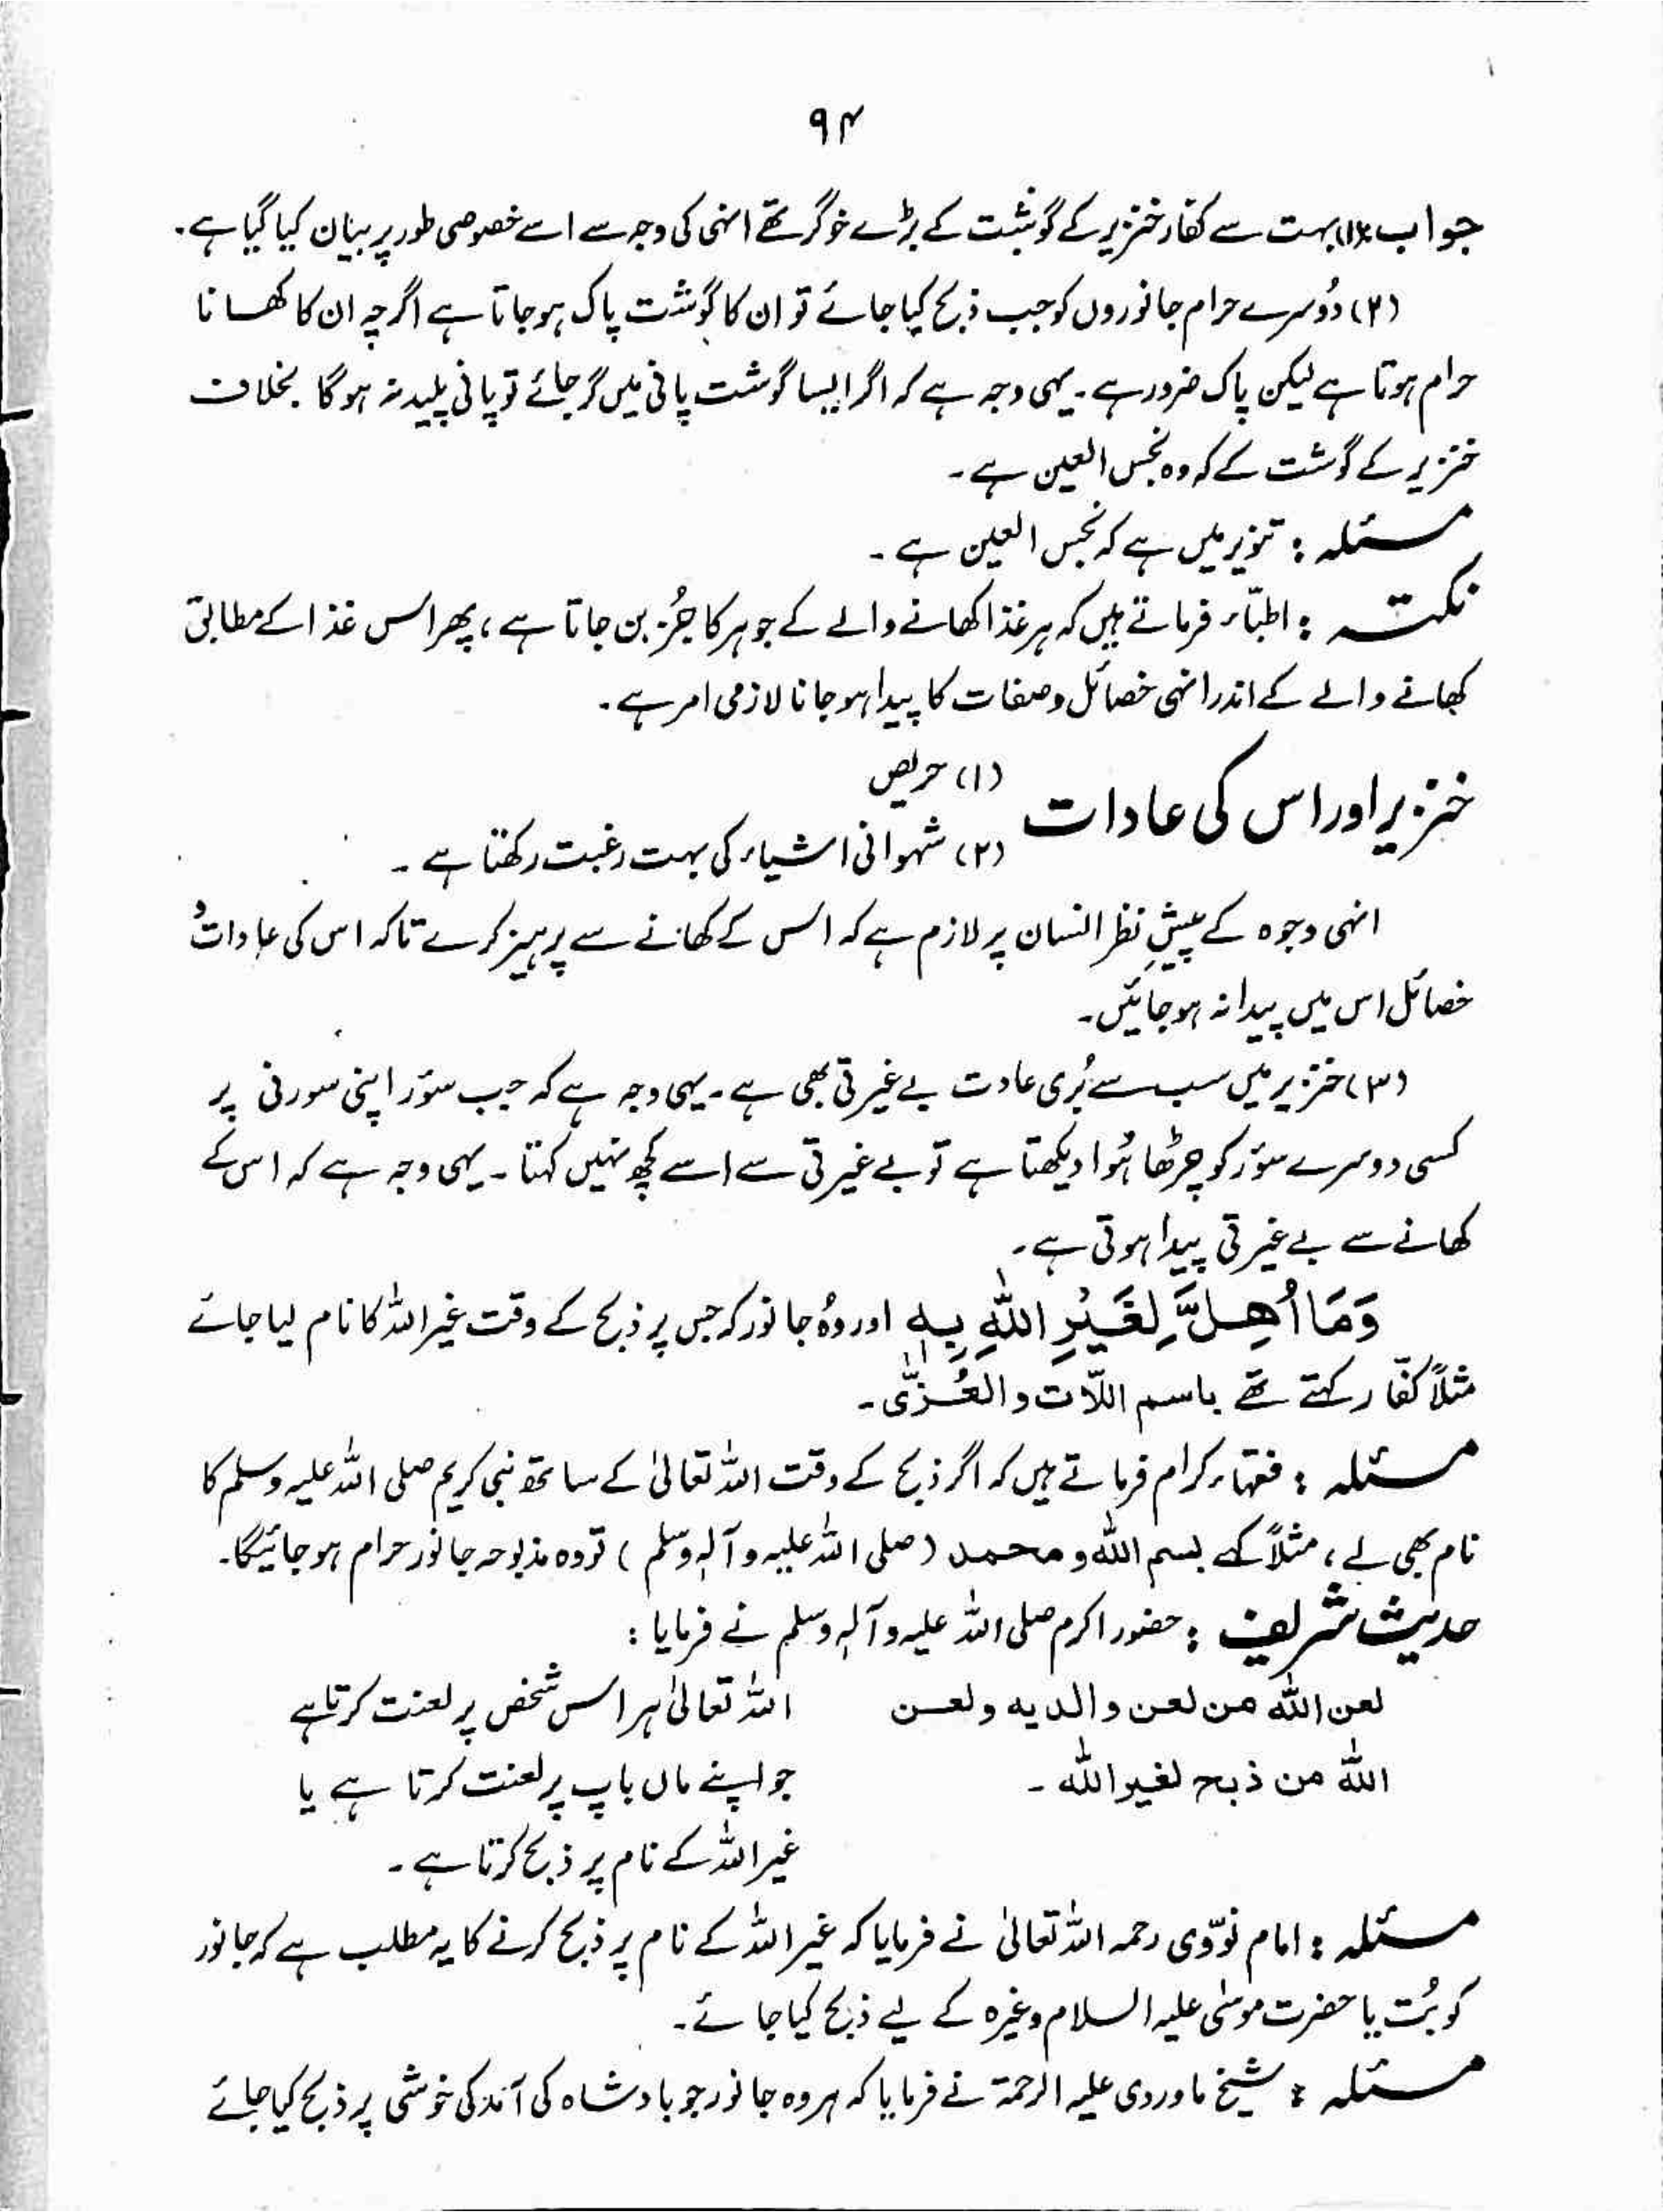 ۹۴
جواب: (۱) بہت سے کفار خنزیر کے گوشت کے بڑے خوگر تھے انہی کی وجہ سے اسے خصوصی طور پر بیان کیا گیا ہے۔
(۲) دُوسرے حرام جانوروں کو جب ذبح کیا جائے تو ان کا گوشت پاک ہوجاتا ہے اگرچہ ان کا کھانا
حرام ہوتا ہے لیکن پاک ضرور ہے۔ یہی وجہ ہے کہ اگر ایسا گوشت پانی میں گر جائے تو پانی پلید نہ ہوگا بخلاف
خنزیر کے گوشت کے کہ وہ نجس العین ہے۔
مسئلہ : تنویر میں ہے کہ نجس العین ہے۔
نکتہ : اطبّاء فرماتے ہیں کہ ہر غذا کھانے والے کے جوہر کا جُز بن جاتا ہے، پھر اس غذا کے مطابق
کھانے والے کے اندر انہی خصائل و صفات کا پیدا ہوجانا لازمی امر ہے۔
خنزیر اور اس کی عادات (۱) حریص
(۲) شہوانی اشیاء کی بہت رغبت رکھتا ہے۔
انہی وجوہ کے پیشِ نظر انسان پر لازم ہے کہ اس کے کھانے سے پرہیز کرے تاکہ اس کی عادات و
خصائل اس میں پیدا نہ ہوجائیں۔
(۳) خنزیر میں سب سے بُری عادت بے غیرتی بھی ہے۔ یہی وجہ ہے کہ جب سؤر اپنی سورنی پر
کسی دوسرے سؤر کو چڑھا ہُوا دیکھتا ہے تو بے غیرتی سے اسے کچھ نہیں کہتا۔ یہی وجہ ہے کہ اس کے
کھانے سے بے غیرتی پیدا ہوتی ہے۔
وَمَا اُهِلَّ لِغَيْرِ اللهِ بِهٖ اور وُہ جانور کہ جس پر ذبح کے وقت غیر اللہ کا نام لیا جائے
مثلاً کفّار کہتے تھے باسم اللّات والعُزّٰی۔
مسئلہ : فقہاء کرام فرماتے ہیں کہ اگر ذبح کے وقت اللہ تعالیٰ کے ساتھ نبی کریم صلی اللہ علیہ وسلم کا
نام بھی لے، مثلاً کہے بسم اللہ و محمد (صلی اللہ علیہ و آلہٖ وسلم) تو وہ مذبوحہ جانور حرام ہو جائیگا۔
حدیث شریف : حضور اکرم صلی اللہ علیہ و آلہٖ وسلم نے فرمایا :
لعن الله من لعن والديه ولعن
الله من ذبح لغير الله ۔
اللہ تعالیٰ ہر اس شخص پر لعنت کرتا ہے
جو اپنے ماں باپ پر لعنت کرتا ہے یا
غیر اللہ کے نام پر ذبح کرتا ہے۔
مسئلہ : امام نووّی رحمہ اللہ تعالیٰ نے فرمایا کہ غیر اللہ کے نام پر ذبح کرنے کا یہ مطلب ہے کہ جانور
کو بُت یا حضرت موسٰی علیہ السلام وغیرہ کے لیے ذبح کیا جائے۔
مسئلہ : شیخ ماوردی علیہ الرحمۃ نے فرمایا کہ ہر وہ جانور جو بادشاہ کی آمد کی خوشی پر ذبح کیا جائے